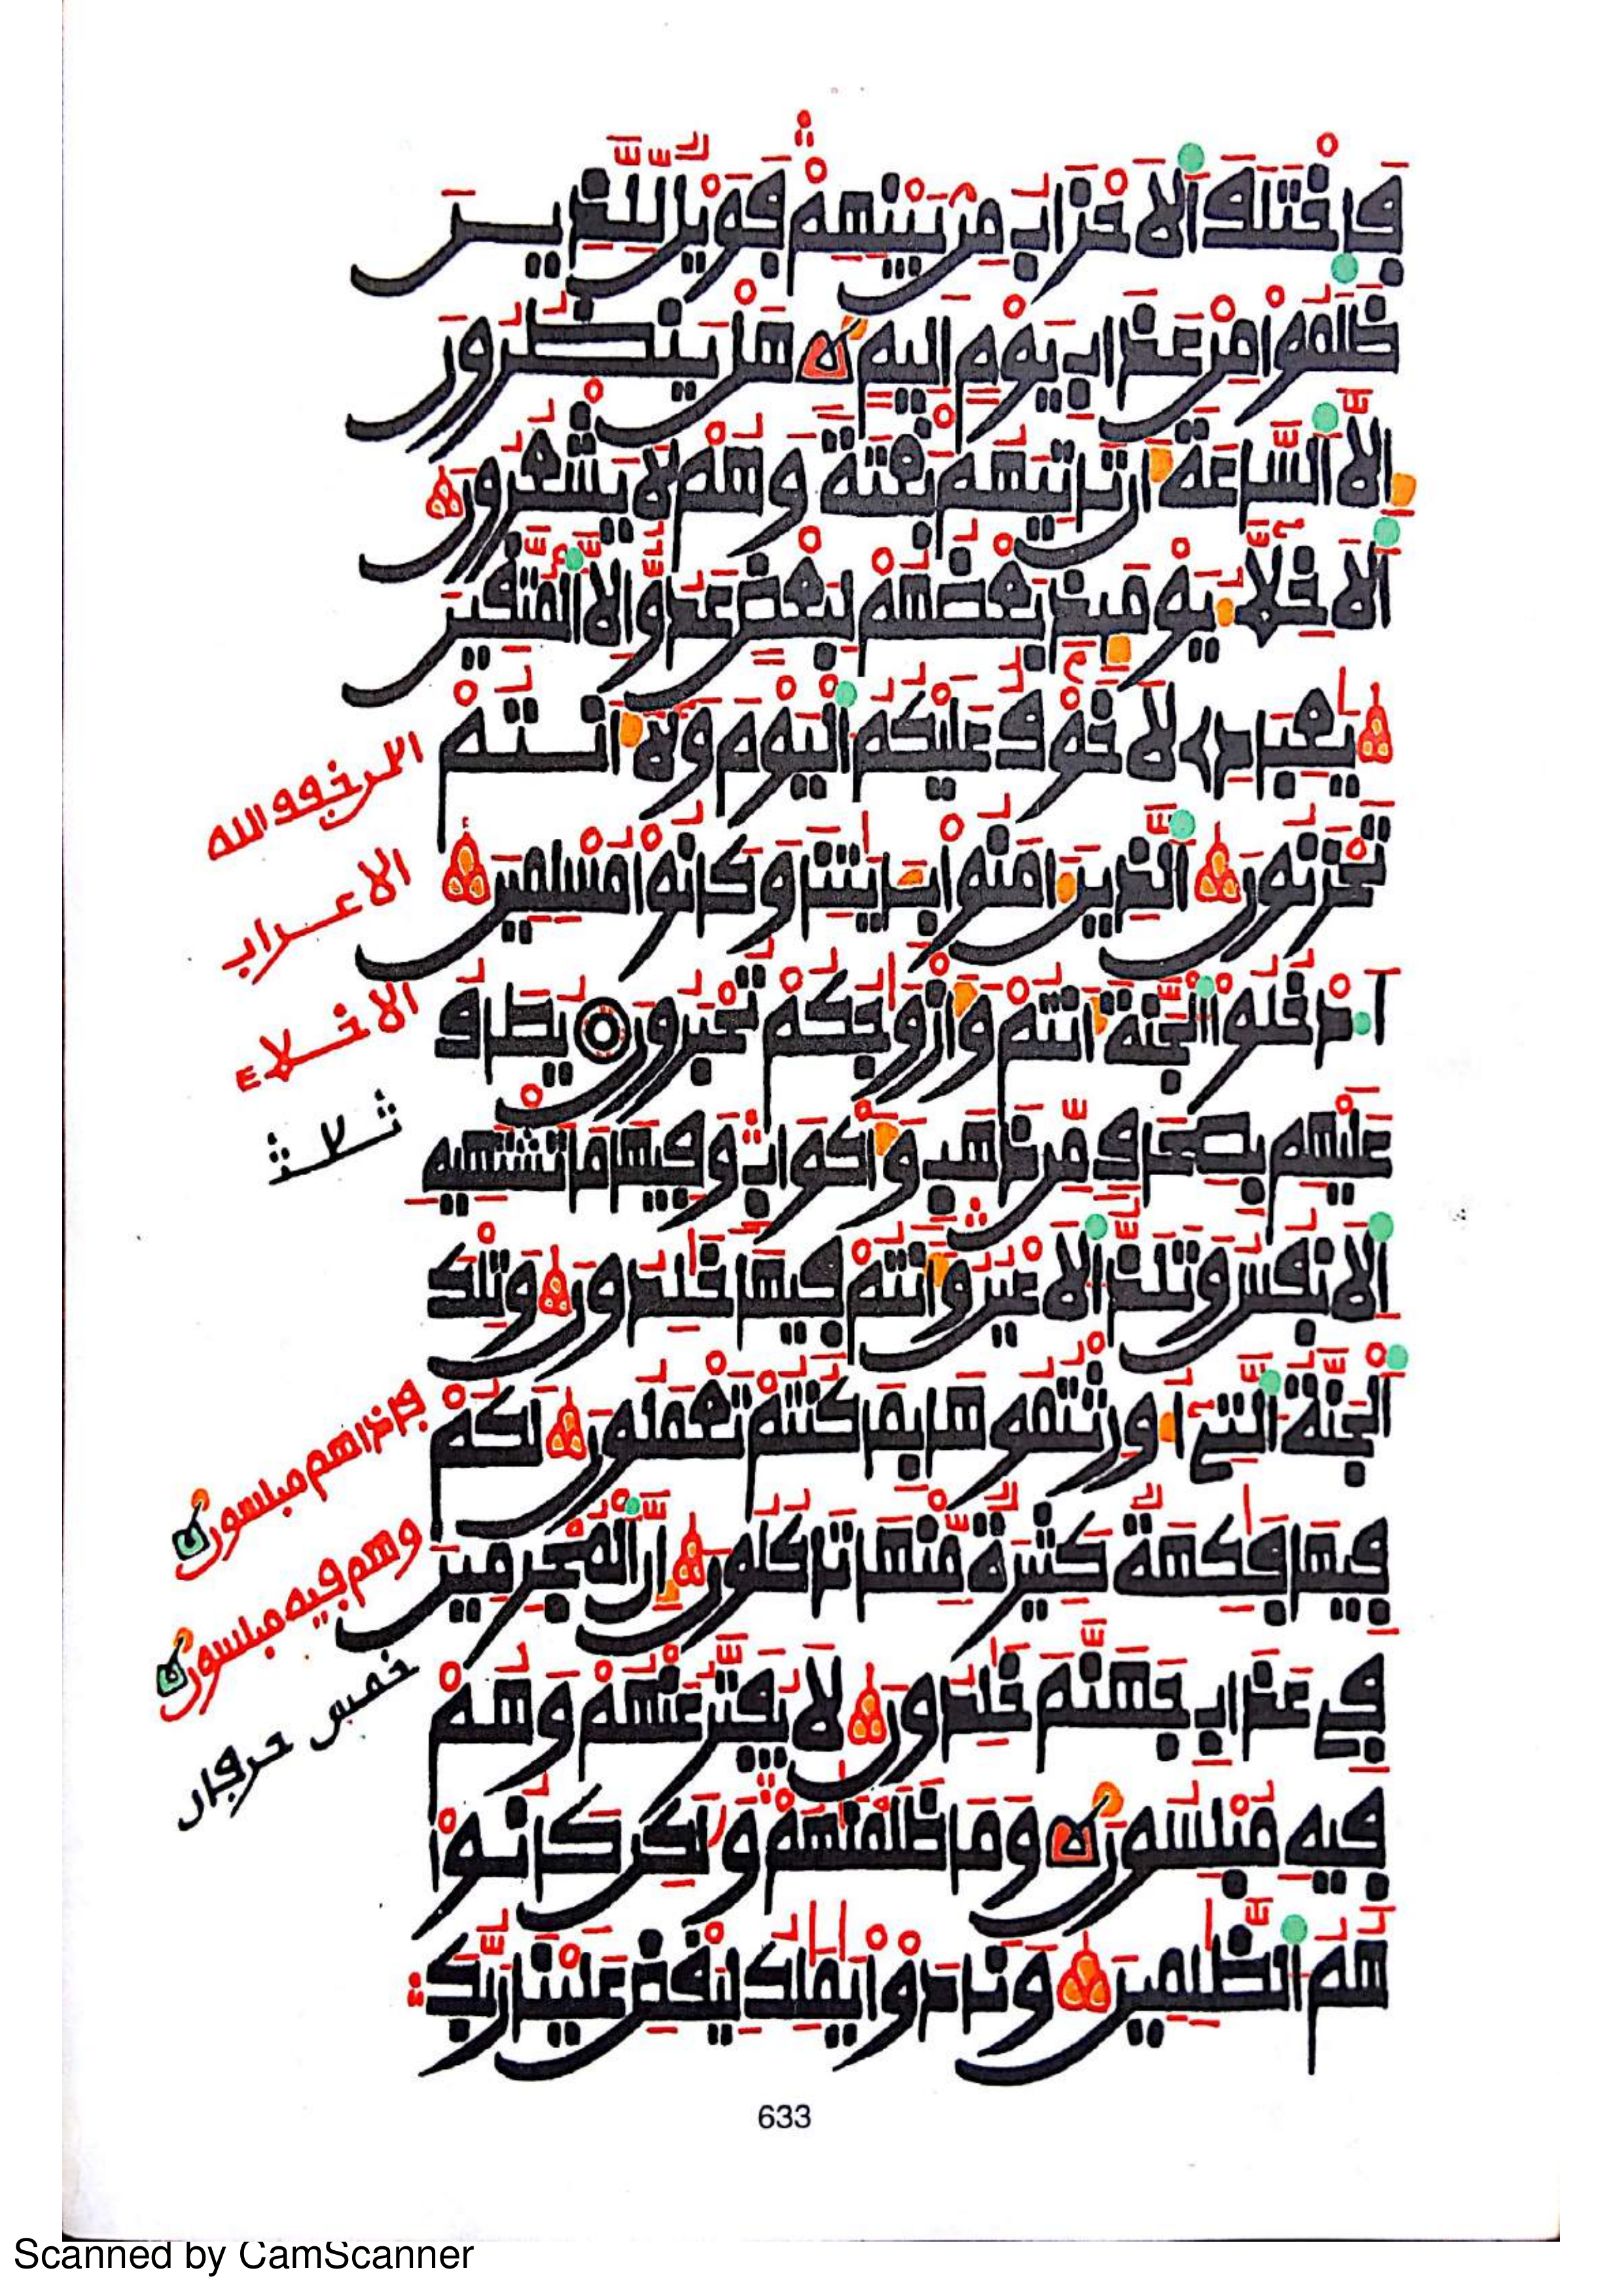 فَاخْتَلَفَ اَلَاحْزَابُ مِنۢ بَيْنِهِمْ فَوَيْلٌ لِّلذِينَ
ظَلَمُواْ مِنْ عَذَابِ يَوْمٍ اَلِيمٍ هَلْ يَنظُرُونَ
إِلَّا اَلسَّاعَةَ أَن تَاتِيَهُم بَغْتَةً وَهُمْ لَا يَشْعُرُونَ
اَلَاخِلَّاءُ يَوْمَئِذٍ بَعْضُهُمْ لِبَعْضٍ عَدُوٌّ اِلَّا اَلْمُتَّقِينَ
يَٰعِبَادِے لَا خَوْفٌ عَلَيْكُمُ اُلْيَوْمَ وَلَا أَنتُمْ
تَحْزَنُونَ اَلذِينَ ءَامَنُواْ بِـَٔايَٰتِنَا وَكَانُواْ مُسْلِمِينَ
اَدْخُلُواْ اُلْجَنَّةَ أَنتُمْ وَأَزْوَٰجُكُمْ تُحْبَرُونَ يُطَافُ
عَلَيْهِم بِصِحَافٍ مِّن ذَهَبٍ وَأَكْوَابٍ وَفِيهَا مَا تَشْتَهِيهِ
اِلَانفُسُ وَتَلَذُّ اُلَاعْيُنُ وَأَنتُمْ فِيهَا خَٰلِدُونَ وَتِلْكَ
اَلْجَنَّةُ اُلتِے أُورِثْتُمُوهَا بِمَا كُنتُمْ تَعْمَلُونَ لَكُمْ
فِيهَا فَٰكِهَةٌ كَثِيرَةٌ مِّنْهَا تَاكُلُونَ إِنَّ اَلْمُجْرِمِينَ
فِے عَذَابِ جَهَنَّمَ خَٰلِدُونَ لَا يُفَتَّرُ عَنْهُمْ وَهُمْ
فِيهِ مُبْلِسُونَ وَمَا ظَلَمْنَٰهُمْ وَلَٰكِن كَانُواْ
هُمُ اُلظَّٰلِمِينَ وَنَادَوْاْ يَٰمَٰلِكُ لِيَقْضِ عَلَيْنَا رَبُّكَ
الاعراب
الاخلاء
ث لا ث
فإذا هم مبلسون
وهم فيه مبلسون
خمس حرفان
633
Scanned by CamScanner